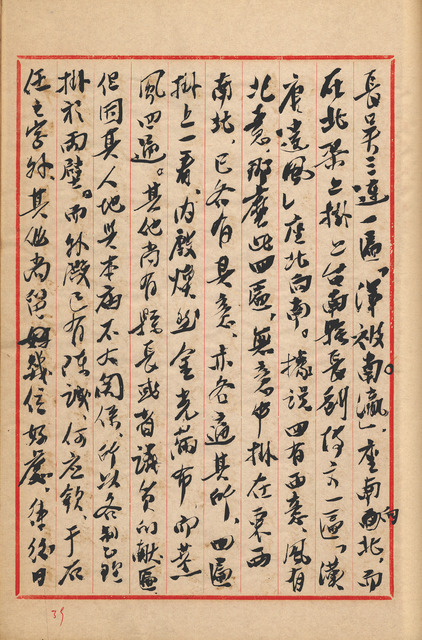 長吳三連一匾「澤被南瀛」座南向北，而
在北梁上掛上台南縣長劉博文一匾，「漢
唐遺風」座北向南。據說四有西意，風有
北意，那麼此四匾，無意中掛在東西
南北，已各有其意，亦各適其所，四匾
掛上一看，內殿燦然金光滿布，即甚
風四逼。其他尚有縣長或者議員的獻匾
但因其人地與本廟不大關係，所以各制
掛於兩壁。而外殿已有陳誠、何应欽、于右
任之字外，其他尚留好幾位好處，準後日
35